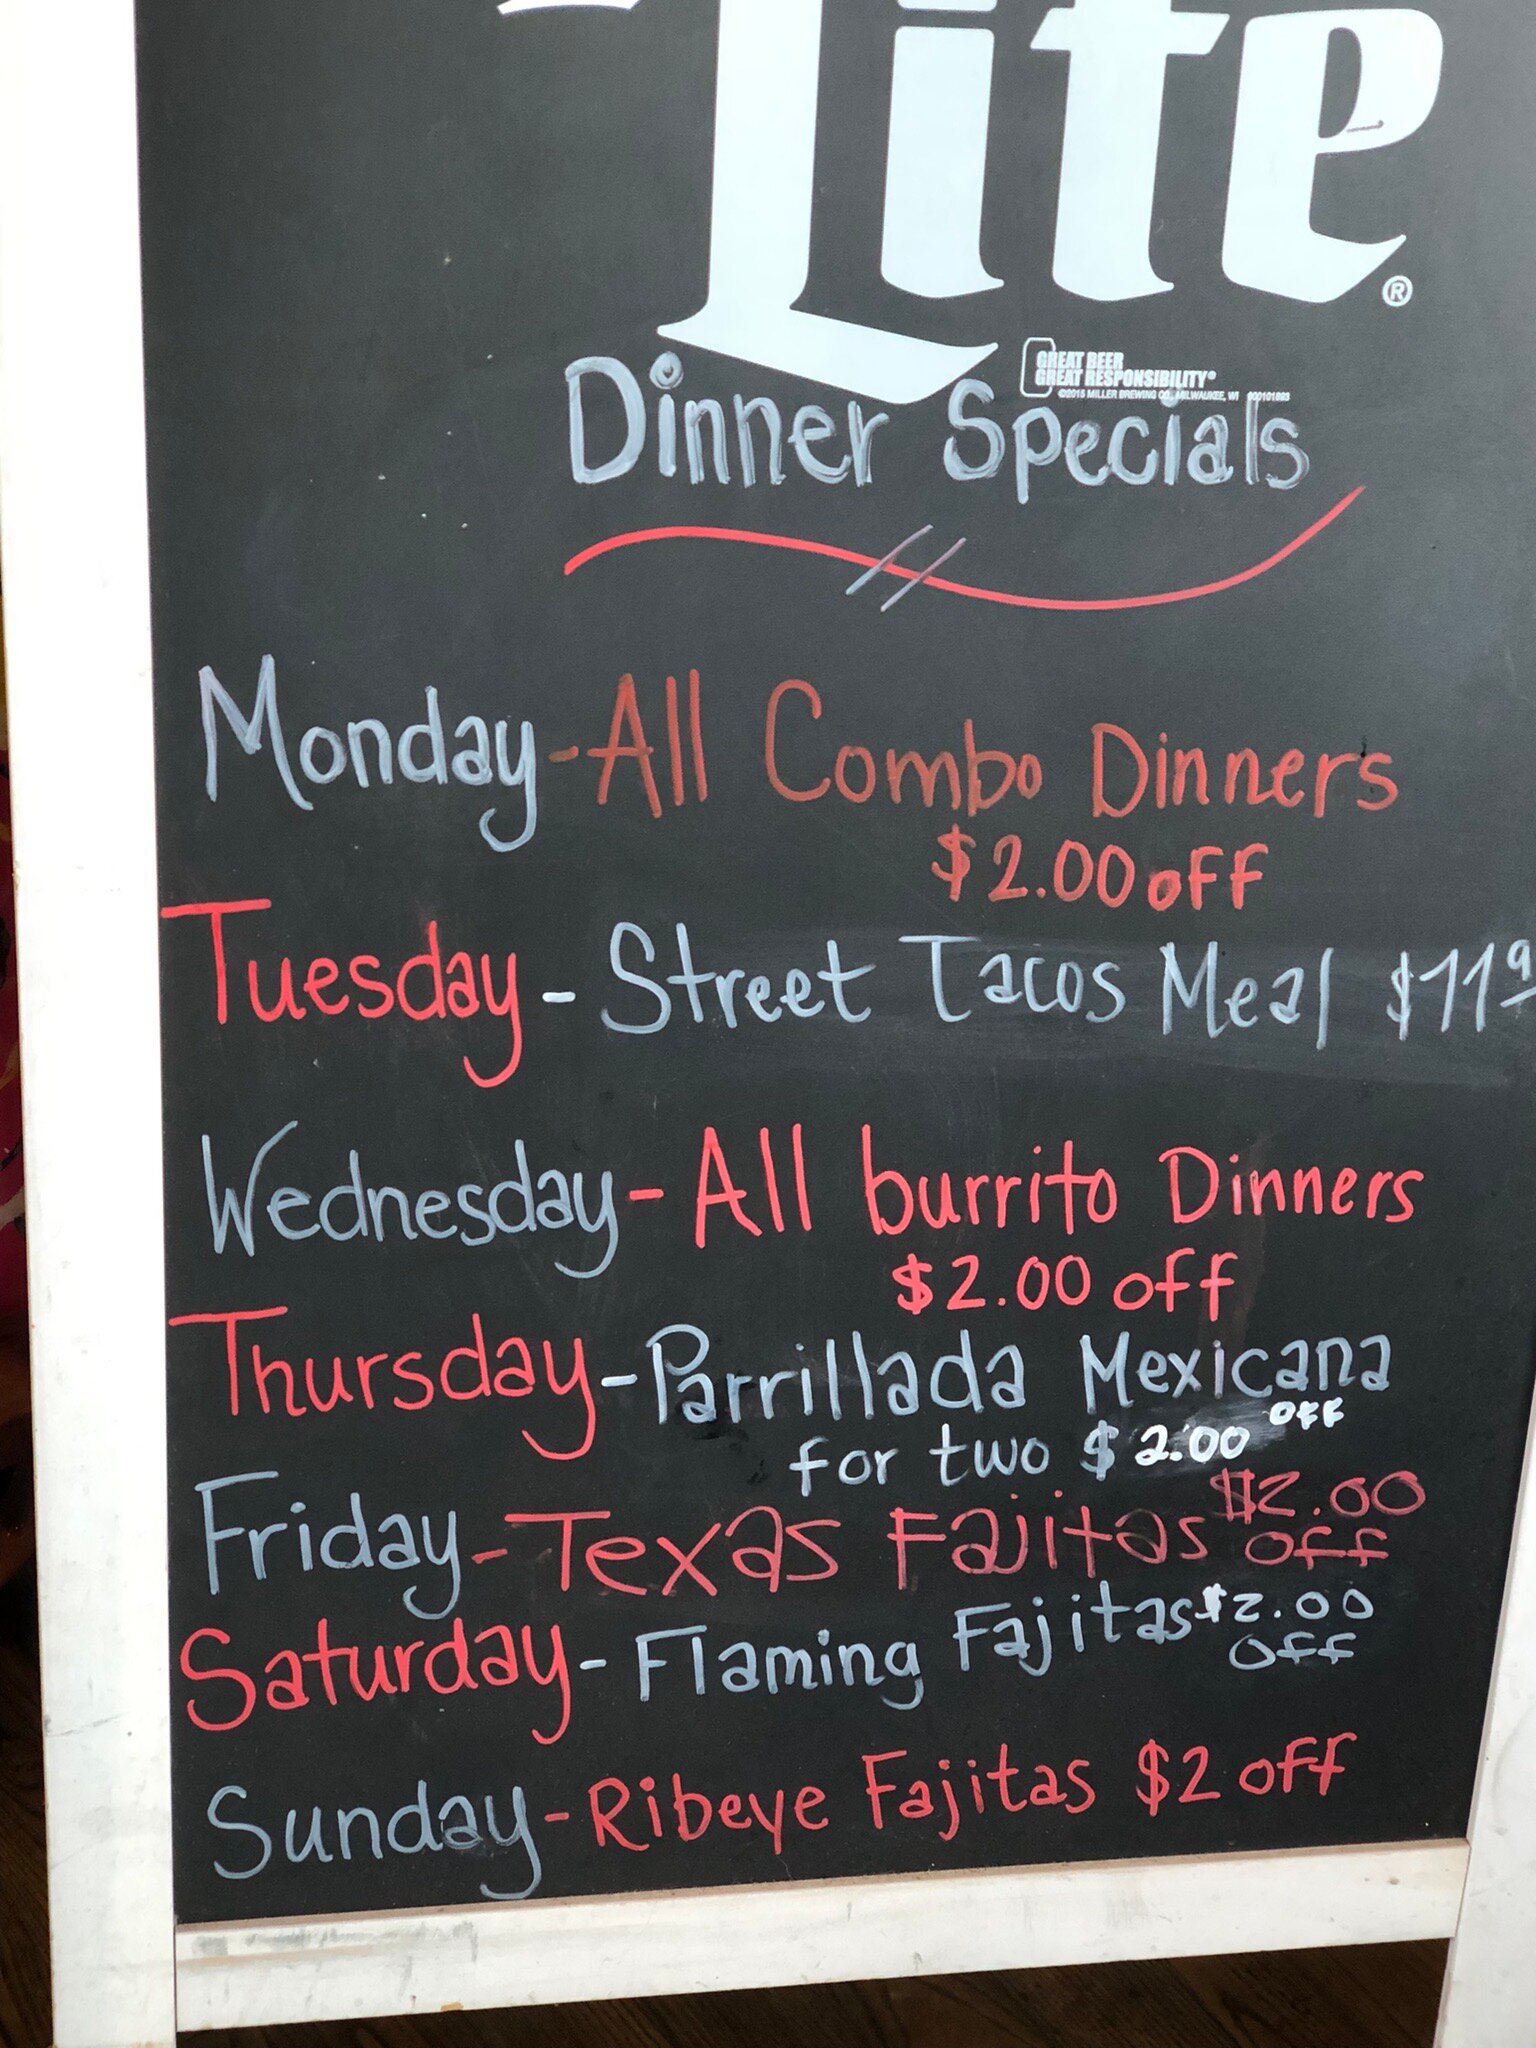 Lite®
GREAT BEER
GREAT RESPONSIBILITY®
©2015 MILLER BREWING CO., MILWAUKEE, WI
Dinner Specials
Monday - All Combo Dinners
$2.00 off
Tuesday - Street Tacos Meal $11.9
Wednesday - All burrito Dinners
$2.00 off
Thursday - Parrillada Mexicana
for two $2.00 off
Friday - Texas Fajitas $2.00
off
Saturday - Flaming Fajitas $2.00
off
Sunday - Ribeye Fajitas $2 off